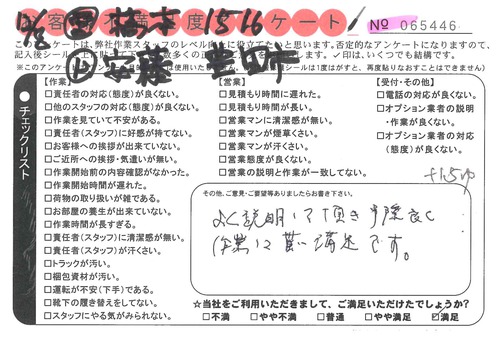 お客様不満足度アンケート
12/8 橋本 1516
佐藤
№ 065446
このアンケートは、弊社作業スタッフのレベル向上に役立てたいと思います。否定的なアンケートになりますので、
チェックリスト
【作業】
□責任者の対応(態度)が良くない。
□他のスタッフの対応(態度)が良くない。
□作業を見ていて不安がある。
□責任者(スタッフ)に好感が持てない。
□お客様への挨拶が出来ていない。
□ご近所への挨拶・気遣いが無い。
□作業開始前の内容確認がなかった。
□作業開始時間が遅れた。
□荷物の取り扱いが雑である。
□お部屋の養生が出来ていない。
□作業時間が長すぎる。
□責任者(スタッフ)に清潔感が無い。
□責任者(スタッフ)が汗くさい。
□トラックが汚い。
□梱包資材が汚い。
□運転が不安(下手)である。
□靴下の履き替えをしてない。
□スタッフにやる気がみられない。
【営業】
□見積もり時間に遅れた。
□見積もり時間が長い。
□営業マンに清潔感が無い。
□営業マンが煙草くさい。
□営業マンが汗くさい。
□営業態度が良くない。
□営業の説明と作業が一致してない。
【受付・その他】
□電話の対応が良くない。
□オプション業者の説明
・作業が良くない。
□オプション業者の対応
(態度)が良くない。
その他、ご意見・ご要望等ありましたらお書き下さい。
よく説明して頂き手際良く
作業して貰い満足です。
☆当社をご利用いただきまして、ご満足いただけてでしょうか?
□不満 □やや不満 □普通 □やや満足 ☑満足